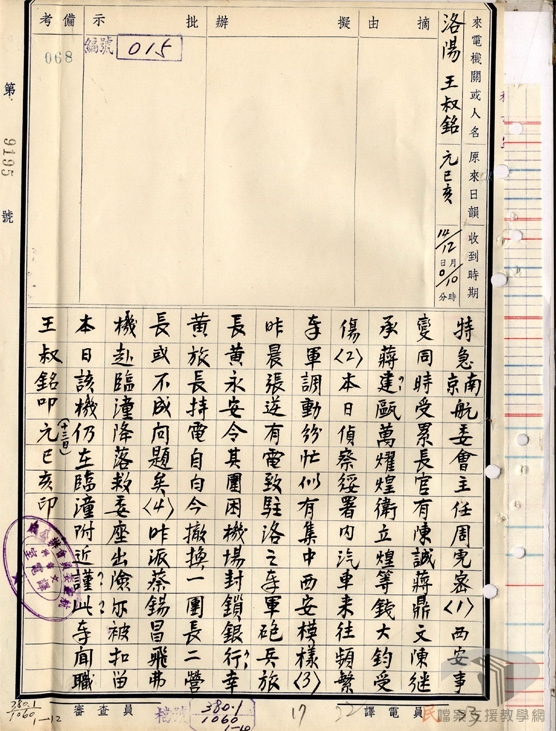 來電機關或人名
原來日韻
收到時期
摘由
擬辦
批示
備考
洛陽 王叔銘
元巳亥
14/12 日月
0/10 分時
編號 015
068
第 9195 號
特急南京航委會主任周密(1)西安事
變同時受累長官有陳誠蔣鼎文陳継
承蔣建?甌萬耀煌衛立煌等錢大鈞受
傷(2)本日偵察綏署內汽車来往頻繁
東軍調動紛忙似有集中西安模樣(3)
昨晨張逆有電致駐洛之東軍砲兵旅
長黃永安令其團困機場封鎖銀行?幸
黃旅長持電自白今撤換一團長二營
長或不成問題矣(4)昨派蔡錫昌飛弗
機赴臨潼降落救委座出險?亦被扣留
本日該機仍在臨潼附近謹?此?東聞職
王叔銘叩元巳亥印
(十三日)
審查員
檔號 380.1/1060 1-10
17
52
譯電員
380.1/1060 1-12
檔案支援教學網